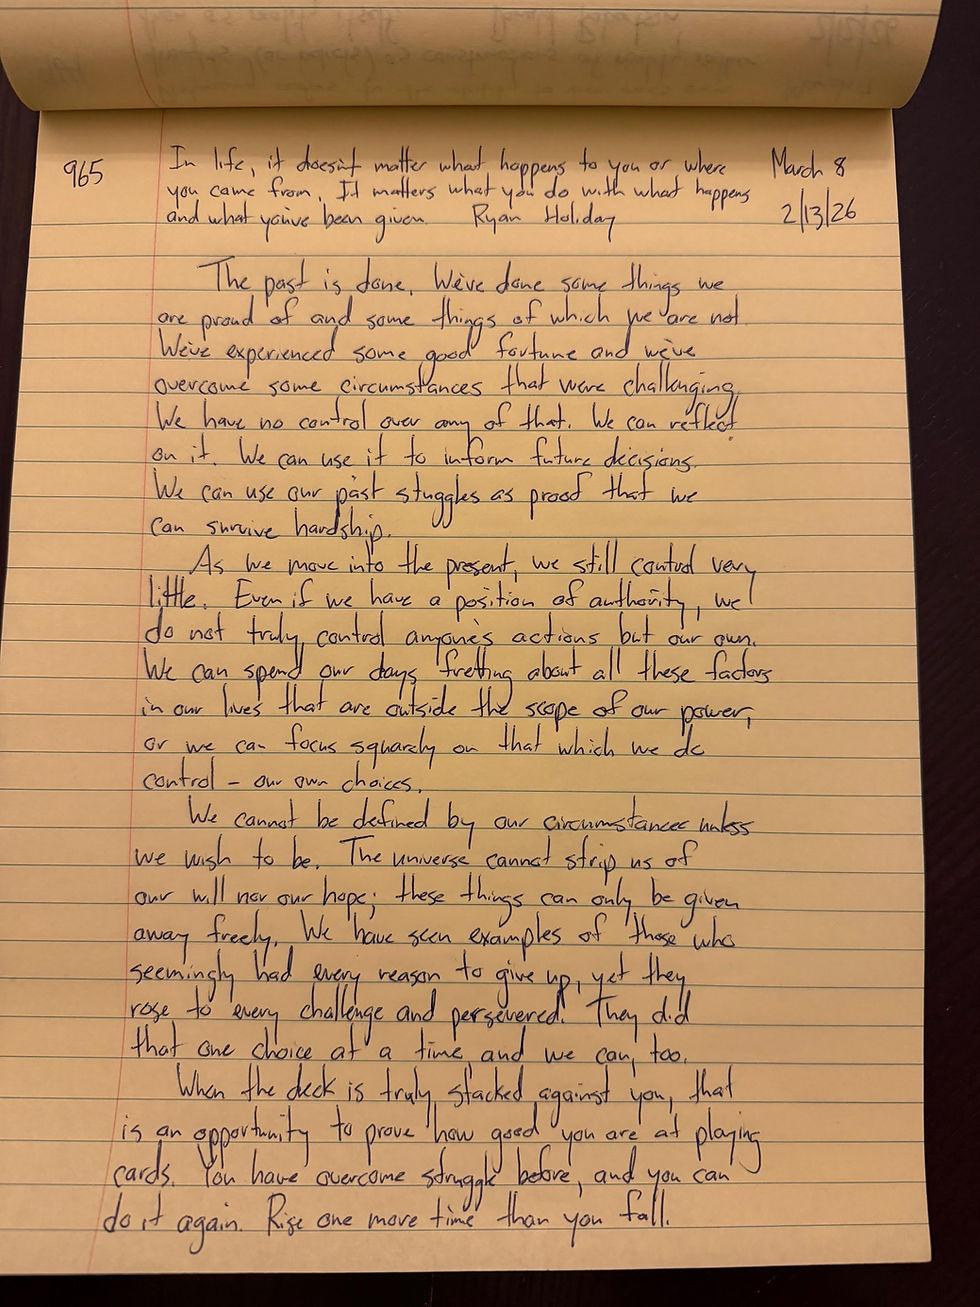 965
In life, it doesn't matter what happens to you or where
you came from. It matters what you do with what happens
and what you've been given. Ryan Holiday
March 8
2/13/26
The past is done. We've done some things we
are proud of and some things of which we are not.
We've experienced some good fortune and we've
overcome some circumstances that were challenging.
We have no control over any of that. We can reflect
on it. We can use it to inform future decisions.
We can use our past stuggles as proof that we
can survive hardship.
As we move into the present, we still control very
little. Even if we have a position of authority, we
do not truly control anyone's actions but our own.
We can spend our days fretting about all these factors
in our lives that are outside the scope of our power,
or we can focus squarely on that which we do
control - our own choices.
We cannot be defined by our circumstances unless
we wish to be. The universe cannot strip us of
our will nor our hope; these things can only be given
away freely. We have seen examples of those who
seemingly had every reason to give up, yet they
rose to every challenge and persevered. They did
that one choice at a time, and we can, too.
When the deck is truly stacked against you, that
is an opportunity to prove how good you are at playing
cards. You have overcome struggle before, and you can
do it again. Rise one more time than you fall.